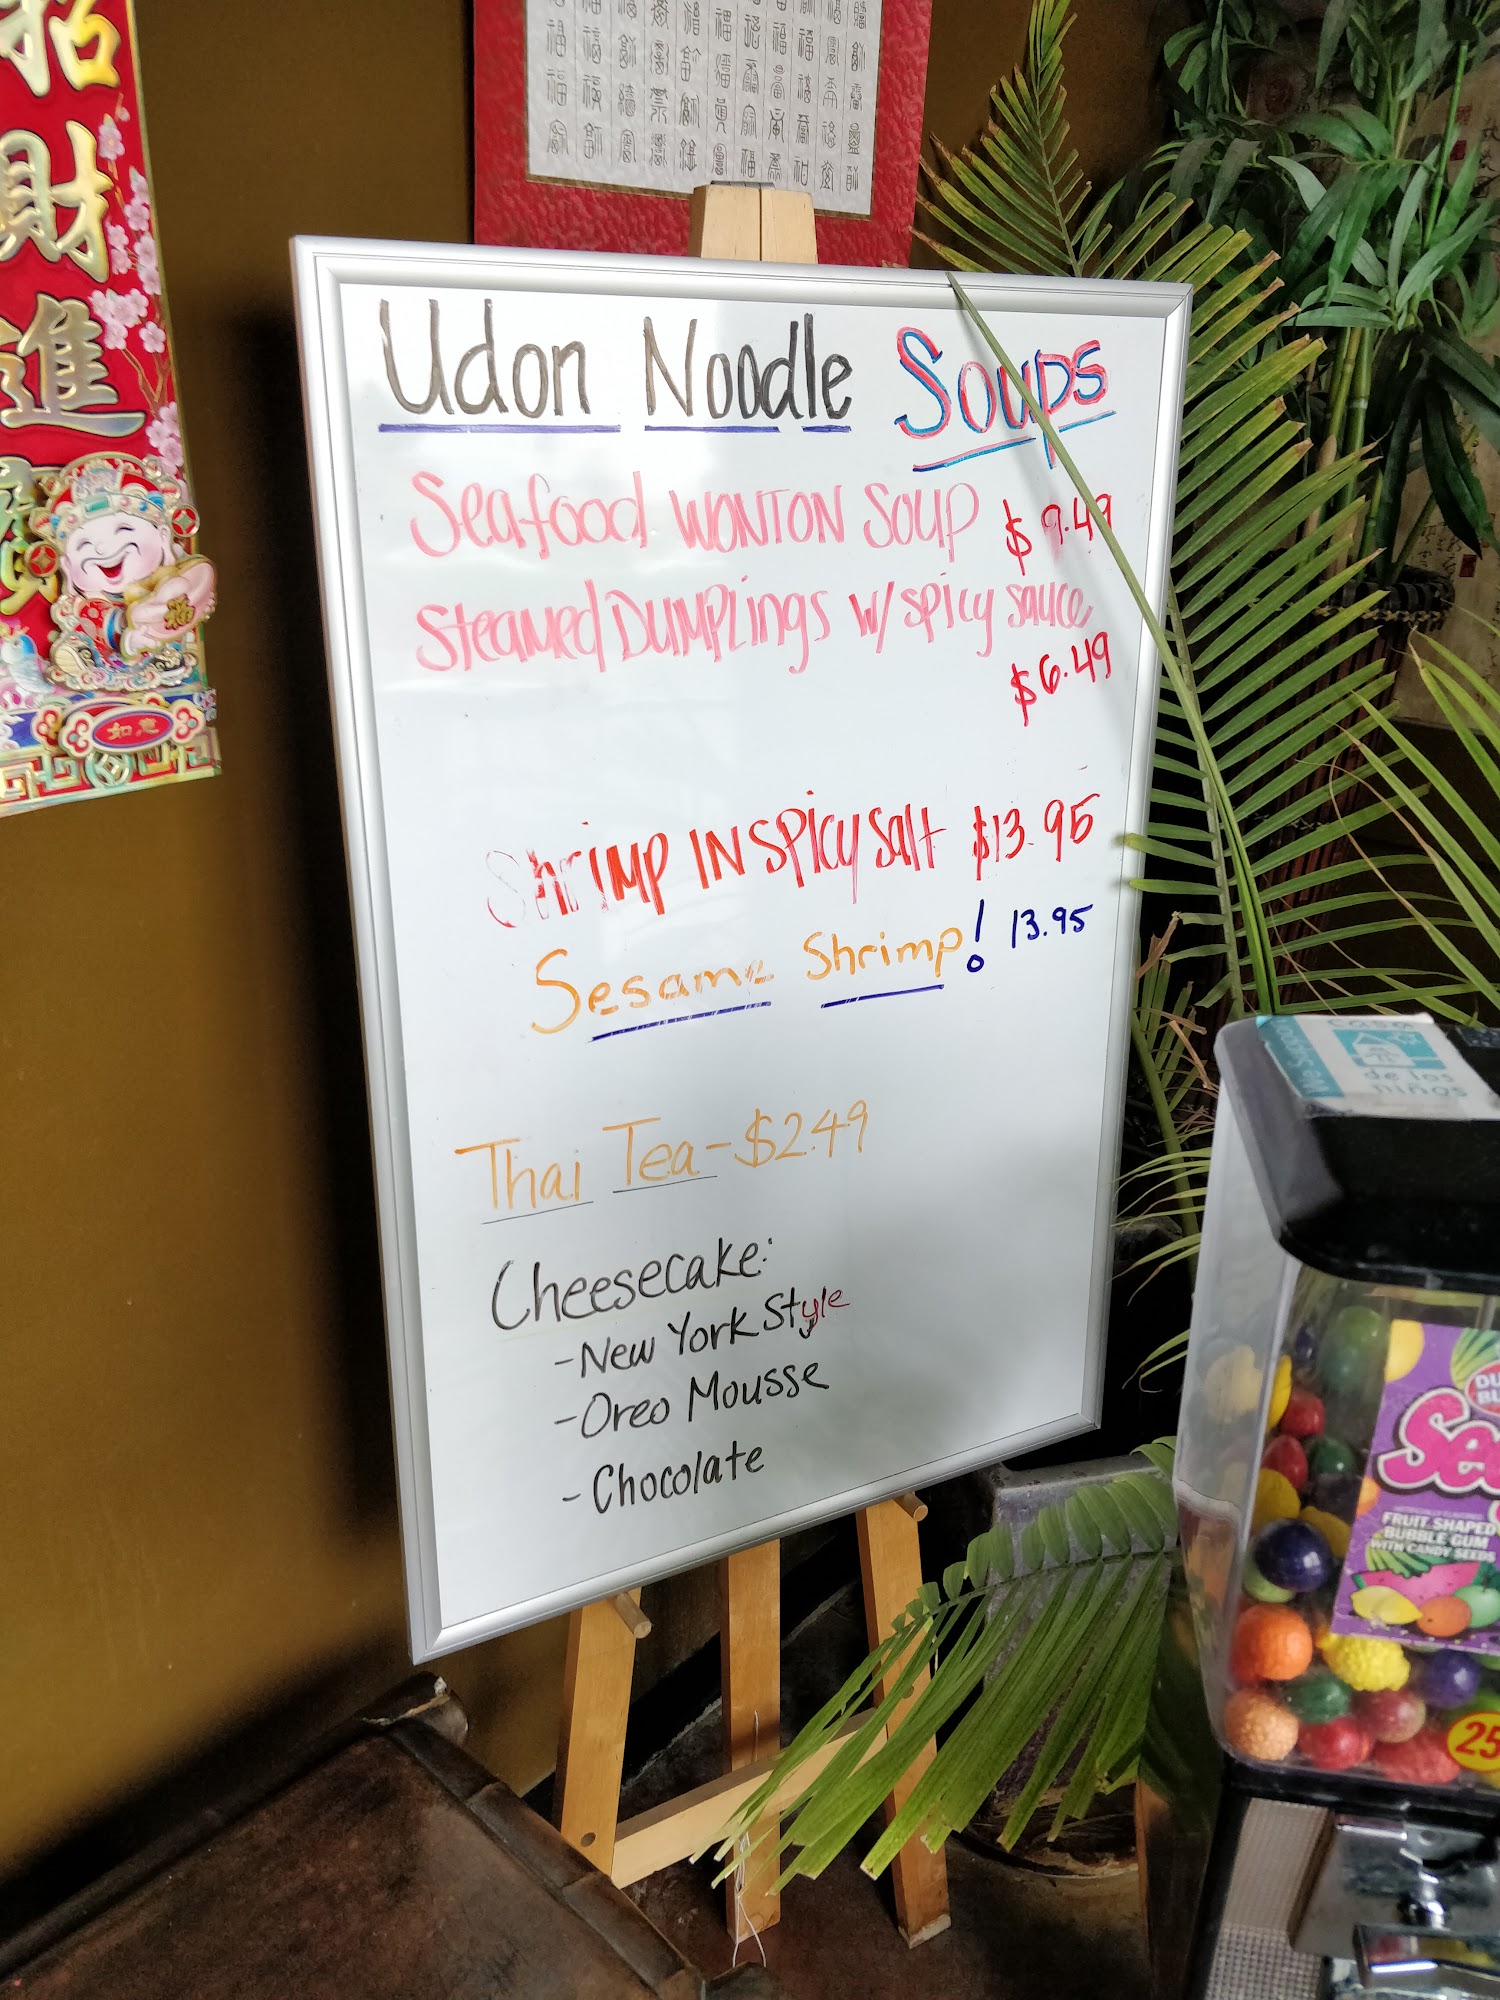 招
財
進
如意
Udon Noodle Soups
Seafood WONTON SOUP $9.49
Steamed DUMPLings w/ spicy sauce
$6.49
Shrimp IN SPicy Salt $13.95
Sesame Shrimp! 13.95
Thai Tea - $2.49
Cheesecake:
- New York Style
- Oreo Mousse
- Chocolate
casa
de los
niños
FRUIT SHAPED
BUBBLE GUM
WITH CANDY SEEDS
25